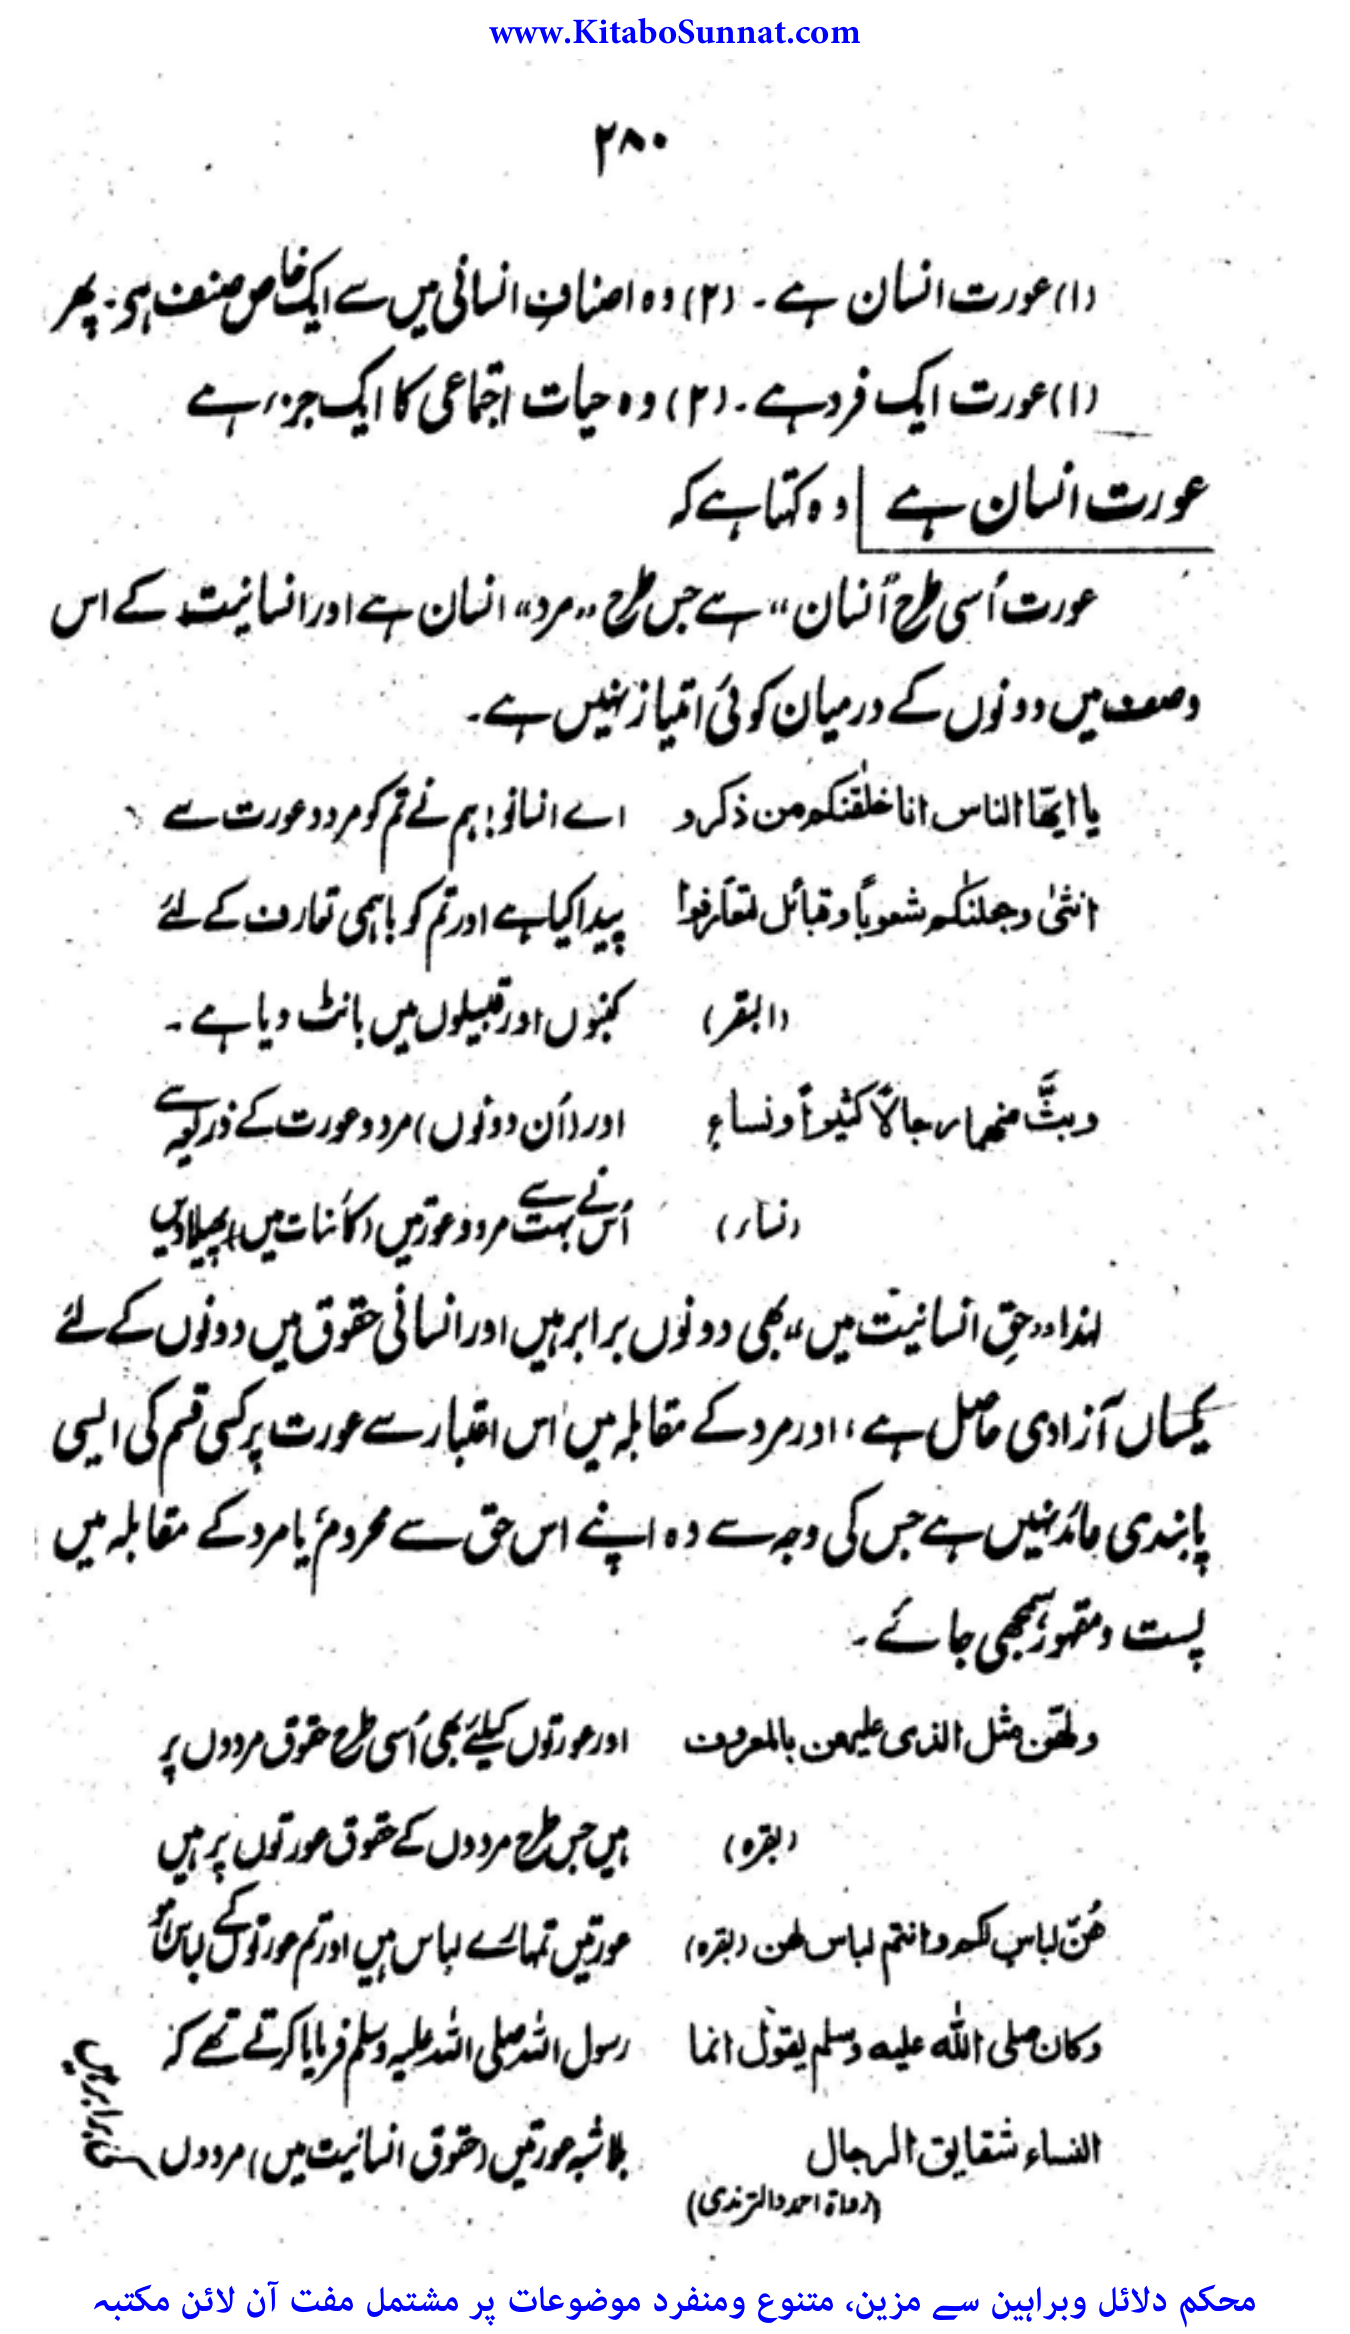 www.KitaboSunnat.com
۲۸۰
(۱) عورت انسان ہے۔ (۲) وہ اصنافِ انسانی میں سے ایک خاص صنف ہی۔ پھر
(۱) عورت ایک فرد ہے۔ (۲) وہ حیات اجتماعی کا ایک جزء ہے
عورت انسان ہے | وہ کہتا ہے کہ
عورت اُسی طرح "انسان" ہے جس طرح "مرد" انسان ہے اور انسانیت کے اس
وصف میں دونوں کے درمیان کوئی امتیاز نہیں ہے۔
یا ایھا الناس انا خلقنٰکم من ذکر و اے انسانو! ہم نے تم کو مرد و عورت سے
انثیٰ وجعلنٰکم شعوباً و قبائل لتعارفوا پیدا کیا ہے اور تم کو باہمی تعارف کے لئے
(البقر) کنبوں اور قبیلوں میں بانٹ دیا ہے۔
وبثَّ منھما رجالاً کثیراً و نساءٍ اور (اُن دونوں) مرد و عورت کے ذریعہ سے
(نساء) اُس نے بہت سے مرد و عورتیں (کائنات میں) پھیلادیں
لہٰذا "حقِ انسانیت میں" بھی دونوں برابر ہیں اور انسانی حقوق میں دونوں کے لئے
یکساں آزادی حاصل ہے، اور مرد کے مقابلہ میں اس اعتبار سے عورت پر کسی قسم کی ایسی
پابندی عائد نہیں ہے جس کی وجہ سے وہ اپنے اس حق سے محروم، یا مرد کے مقابلہ میں
پست و مقہور سمجھی جائے۔
ولھّن مثل الذی علیھن بالمعروف اور عورتوں کیلئے بھی اُسی طرح حقوق مردوں پر
(بقرہ) ہیں جس طرح مردوں کے حقوق عورتوں پر ہیں
ھُنّ لباس لکم وانتم لباس لھن (بقرہ) عورتیں تمہارے لباس ہیں اور تم عورتوں کے لباس ہو
وکان صلی اللہ علیہ وسلم یقول انما رسول اللہ صلی اللہ علیہ وسلم فرمایا کرتے تھے کہ
النساء شقایق الرجال بلاشبہ عورتیں (حقوق انسانیت میں) مردوں کے برابر ہیں
(رواۃ احمد والترمذی)
محکم دلائل وبراہین سے مزین، متنوع ومنفرد موضوعات پر مشتمل مفت آن لائن مکتبہ